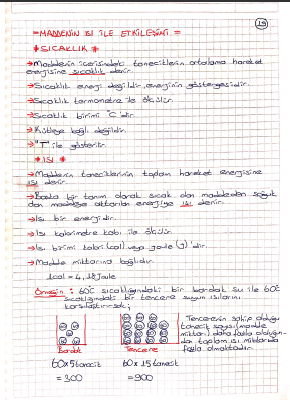 19
=MADDENİN ISI İLE ETKİLEŞİMİ=
* SICAKLIK *
→Maddenin içerisindeki taneciklerin ortalama hareket
enerjisine sıcaklık denir.
→Sıcaklık enerji değildir, enerjinin göstergesidir.
→Sıcaklık termometre ile ölçülür.
→Sıcaklık birimi °C'dir.
→Kütleye bağlı değildir.
→"T" ile gösterilir.
* ISI *
→Maddenin taneciklerinin toplam hareket enerjisine
ısı denir.
→Başka bir tanım olarak sıcak olan maddeden soğuk
olan maddeye aktarılan enerjiye ısı denir.
→Isı bir enerjidir.
→Isı kalorimetre kabı ile ölçülür.
→Isı birimi kalori (cal) veya joule (J)'dir.
→Madde miktarına bağlıdır.
1cal = 4,18 Joule
Örneğin: 60°C sıcaklığındaki bir bardak su ile 60°C
sıcaklığındaki bir tencere suyun ısılarını
karşılaştırırsak;
Tencerenin sahip olduğu
tanecik sayısı (madde
miktarı) daha fazla olduğun-
dan toplam ısı miktarıda
fazla olmaktadır.
Bardak
Tencere
60x5 tanecik
60 x 15 tanecik
= 300
= 900